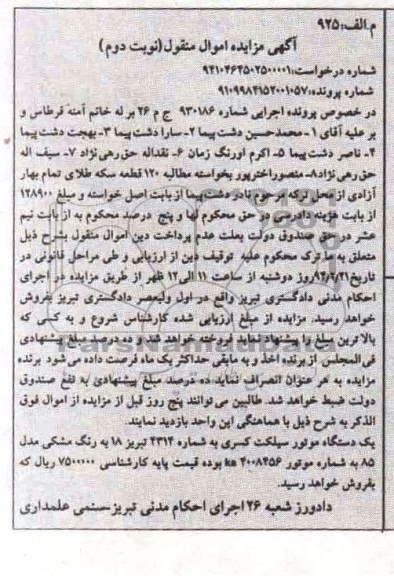 م.الف:۹۲۵
آگهی مزایده اموال منقول(نوبت دوم)
شماره درخواست:۹۴۱۰۴۶۴۵۰۲۵۰۰۰۰۱
شماره پرونده:۹۱۰۹۹۸۴۱۵۲۰۰۱۰۵۷
در خصوص پرونده اجرایی شماره ۹۳۰۱۸۶ ج م ۲۶ بر له خانم آمنه قرطاس و
بر علیه آقای ۱- محمدحسین دشت پیما ۲- سارا دشت پیما ۳- بهجت دشت پیما
۴- ناصر دشت پیما ۵- اکرم اورنگ زمان ۶- نقداله حق رهی نژاد ۷- سیف اله
حق رهی نژاد۸- منصوراخترپور بخواسته مطالبه ۱۲۰ قطعه سکه طلای تمام بهار
آزادی از محل ترکه مرحوم نادر دشت پیما از بابت اصل خواسته و مبلغ ۱۲۸۹۰۰
از بابت هزینه دادرسی در حق محکوم لها و پنج درصد محکوم به از بابت نیم
عشر در حق صندوق دولت بعلت عدم پرداخت دین اموال منقول بشرح ذیل
متعلق به ماترک محکوم علیه توقیف دین از ارزیابی و طی مراحل قانونی در
تاریخ۹۴/۶/۲۱روز دوشنبه از ساعت ۱۱ الی ۱۲ ظهر از طریق مزایده در اجرای
احکام مدنی دادگستری تبریز واقع در اول ولیعصر دادگستری تبریز بفروش
خواهد رسید. مزایده از مبلغ ارزیابی شده کارشناس شروع و به کسی که
بالاترین مبلغ را پیشنهاد نماید فروخته خواهد شد و ده درصد مبلغ پیشنهادی
فی المجلس از برنده اخذ و به مابقی حداکثر یک ماه فرصت داده می شود برنده
مزایده به هر عنوان انصراف نماید ده درصد مبلغ پیشنهادی به نفع صندوق
دولت ضبط خواهد شد. طالبین می توانند پنج روز قبل از مزایده از اموال فوق
الذکر به شرح ذیل با هماهنگی این واحد بازدید نمایند.
یک دستگاه موتور سیلکت کسری به شماره ۴۳۱۴ تبریز ۱۸ به رنگ مشکی مدل
۸۵ به شماره موتور ka ۴۰۰۸۴۵۶ بوده قیمت پایه کارشناسی ۷۵۰۰۰۰۰ ریال که
بفروش خواهد رسید.
دادورز شعبه ۲۶ اجرای احکام مدنی تبریز-سنمی علمداری